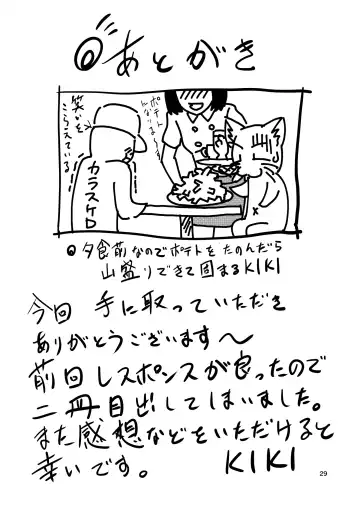 あとがき
ポテト
なりまーす
笑いを
こらえている
カラスケロ
夕食前なのでポテトをたのんだら
山盛りできて固まるKIKI
今回 手に取っていただき
ありがとうございます〜
前回レスポンスが良ったので
二冊目出してしまいました。
また感想などをいただけると
幸いです。 KIKI
29